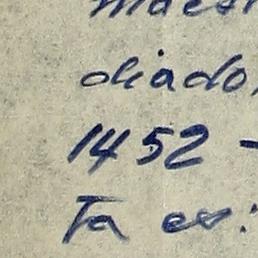 diado,
1452 -
Ta es: